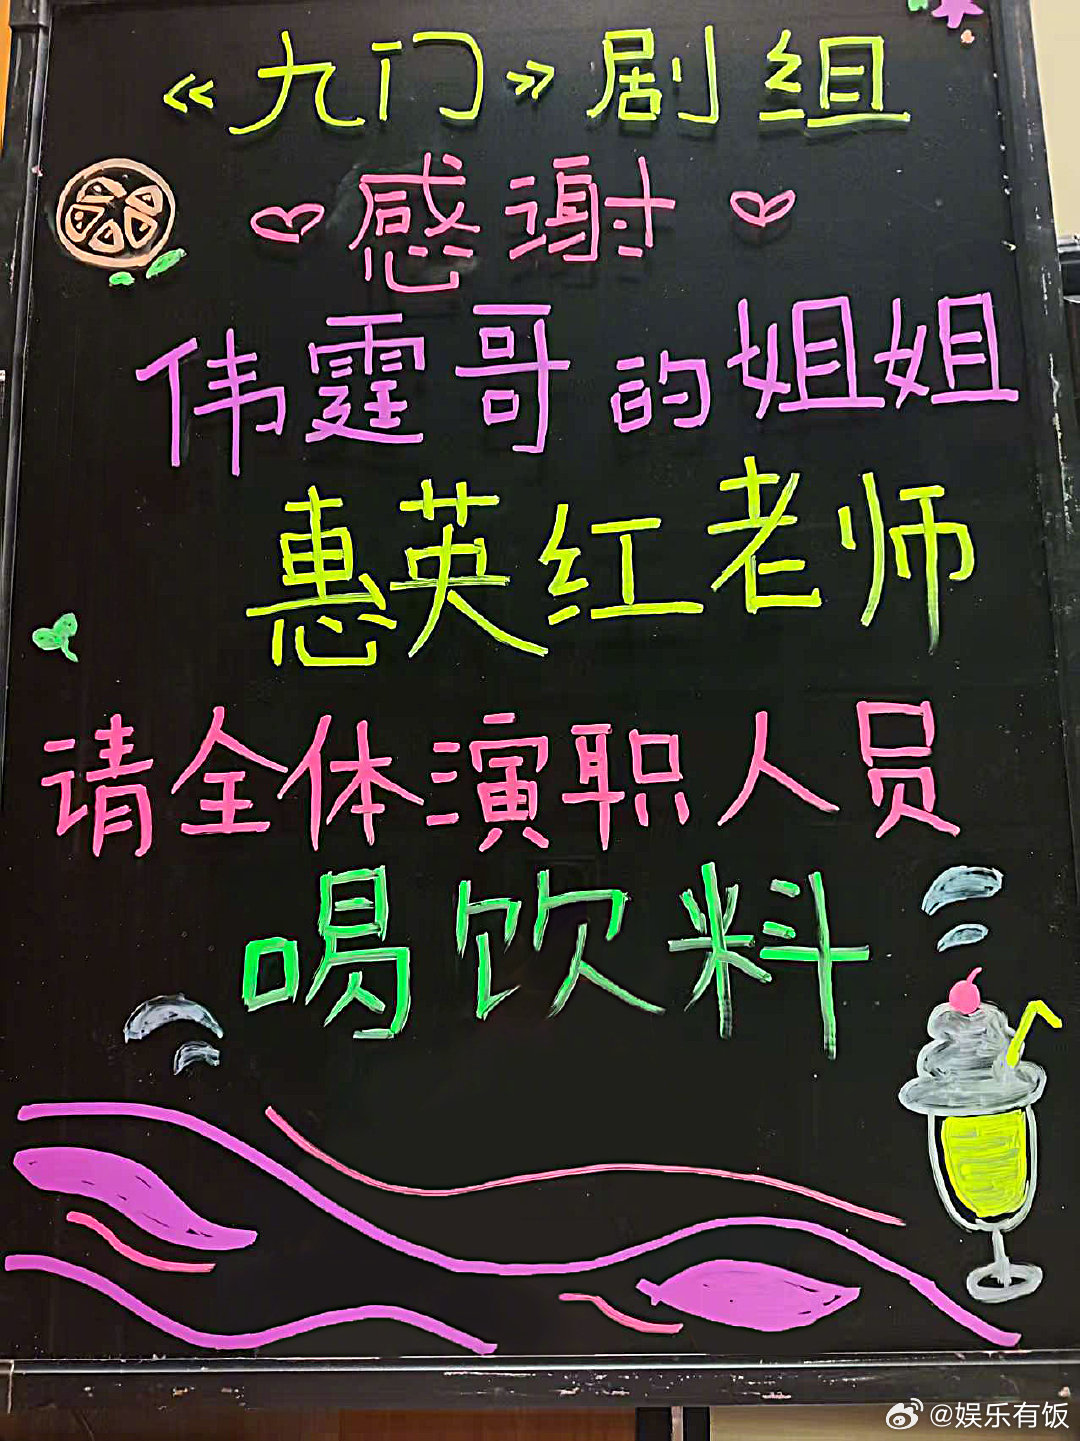 《九门》剧组
感谢
伟霆哥的姐姐
惠英红老师
请全体演职人员
喝饮料
@娱乐有饭